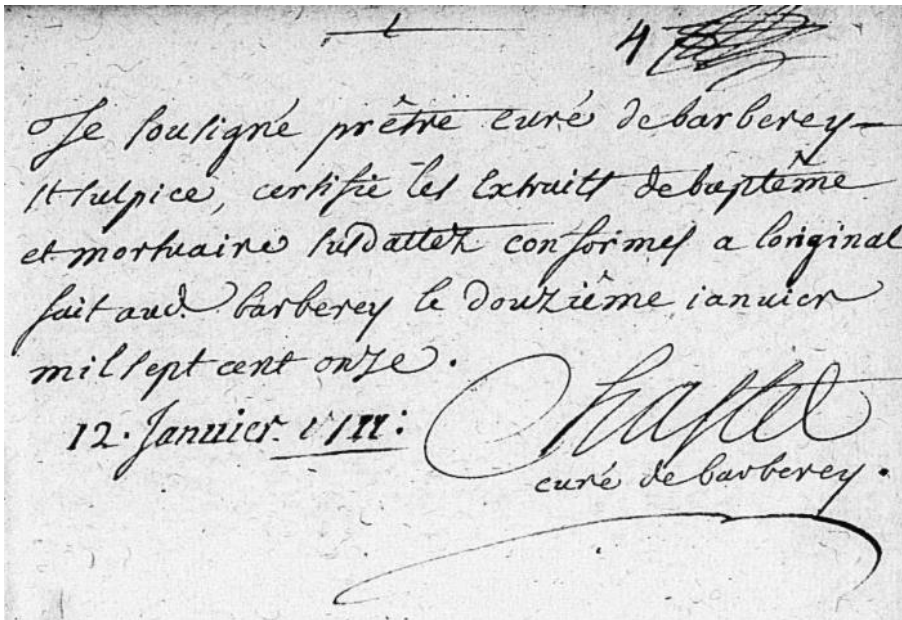 4
Je sousigné prêtre curé de barberey
st sulpice, certifie les Extraits de baptême
et mortuaire susdattez conformes a loriginal
fait aud. barberey le douziême ianuier
mil sept cent onze.
12. Januier. 1711:
Chastel
curé de barberey.